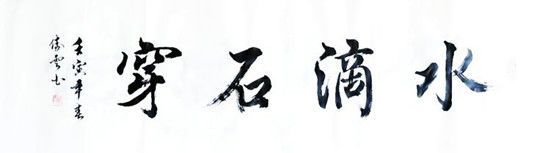 水滴石穿
壬寅年春